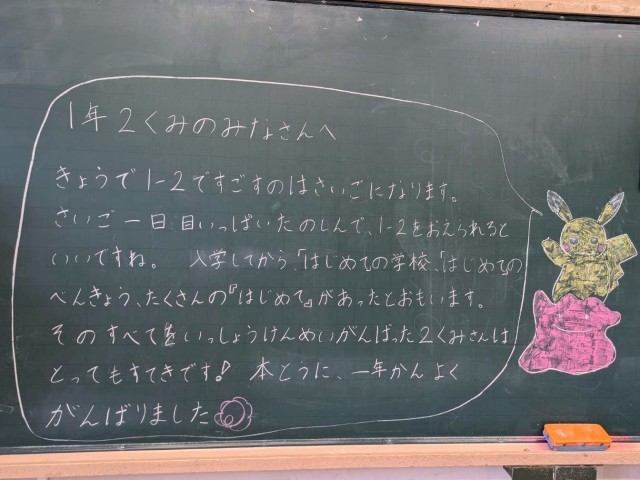 1年2くみのみなさんへ
きょうで1-2ですごすのはさいごになります。
さいご一日目いっぱいたのしんで、1-2をおえられると
いいですね。 入学してから、「はじめての学校」、「はじめての
べんきょう、たくさんの『はじめて』があったとおもいます。
そのすべてをいっしょうけんめいがんばった2くみさんは
とってもすてきです! 本とうに、一年かんよく
がんばりました